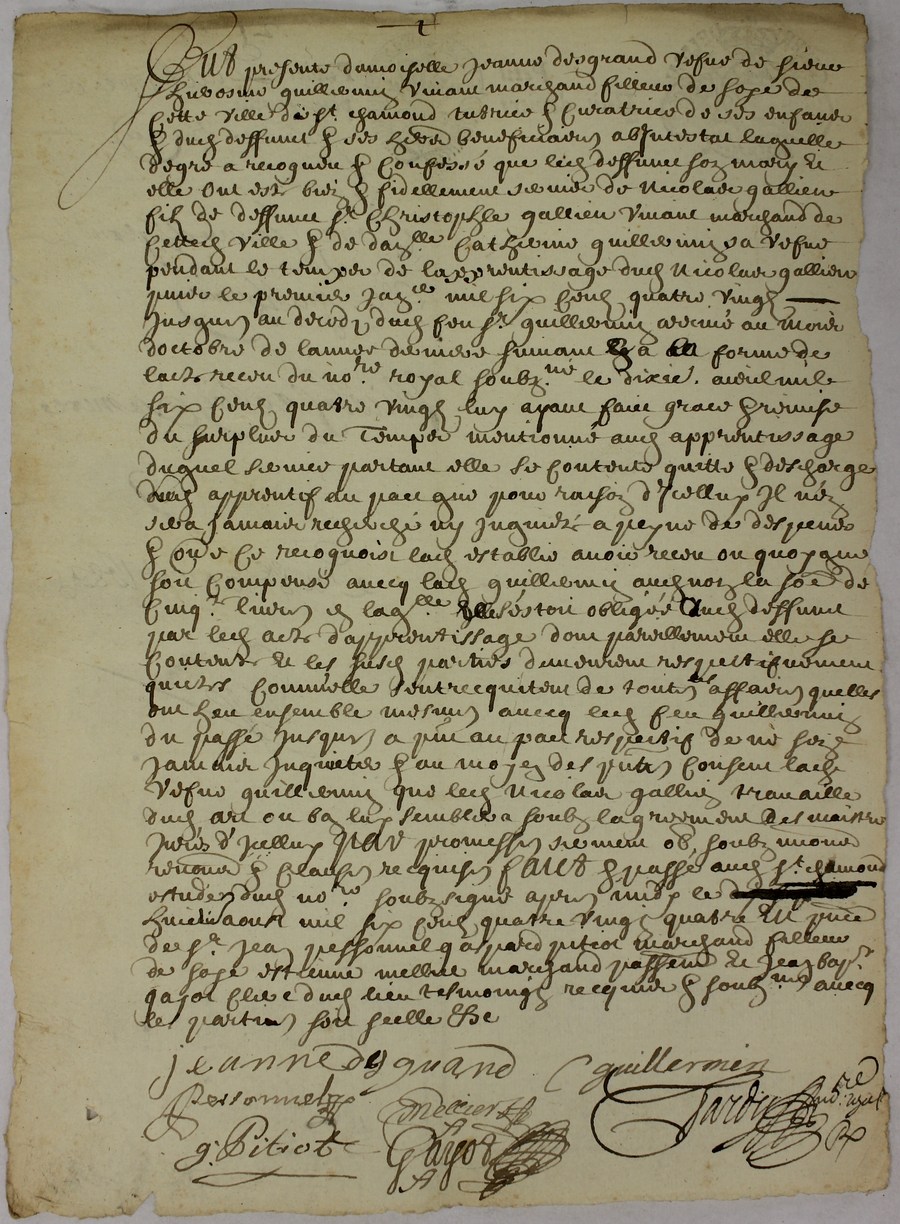 Fut presente damoiselle Jeanne desgrand vefve de sieur
guillermin vivant marchand filleur de soye de
cette ville de St. chamond tutrice & curatrice de ses enfans
& dud deffunct & ses heritiers beneficiaires abintestat laquelle
degre a recogneu & confessé que led deffunct son mary et
elle ont esté bien & fidellement servies de Nicolas gallien
filz de deffunct sr. Christophle gallien vivant marchand de
cetted ville & de dalle Catherine guillermin sa vefve
pendant le temps de lapprentissage dud Nicolas gallien
puis le premier janer mil six centz quatre vingtz
jusques au decedz dud feu sr. guillermin arrivé au mois
doctobre de lannee derniere suivant la forme de
lacte receu du nore royal soubzne le dixie. avril mil
six centz quatre vingtz luy ayant faict grace & remise
du surplus du temps mentionné aud apprentissage
duquel service partant elle se contente quitte & descharge
dud apprentif au pact que pour raison d'icelluy il nen
sera jamais recherché ny inquieté a peyne de despens
& comme ce recognoist lad establie avoir receu ou quoy que
soit compensé avecq lad guillermin la some de
cinqte livres en laqlle elle s'estoit obligée aud deffunct
par led acte d'apprentissage dont pareillement elle se
contente et les susd parties demeurent respectifvement
quictes comme elle s'entrecquitent de toutes affaires quelles
ont heu ensemble mesmes avecq led feu guillermin
du passé jusques a pnt au pact respectif de ne sen
jamais inquieter & au moyen des pntes consent lade
vefve guillermin que led Nicolas gallien travaille
dud art ou bon luy semblera soubz lagreement des maistres
jurés d'icelluy promesses serment ob. soubzmions
renonons & clauses recquises faict & passé aud St. chamond
estude dud nore soubzsigné apres midy le
huict aoust mil six centz quatre vingtz quatre en pnce
de sr. Jean pessonnel gaspard pitiot marchand filleur
de soye estienne mellier marchand passem et Jean bapte
gayot clerc dud lieu tesmoings recquis & soubznes avecq
les parties soit seelle &c
jeanne desgrand C guillermin
Pessonnel Mellier Tardy nore royal
g. Pitiot Gayot